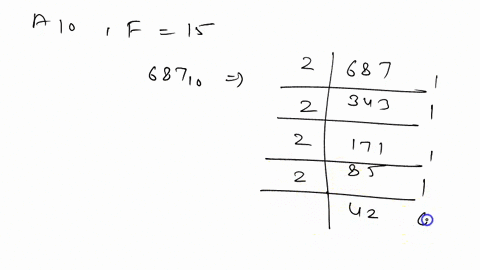 A 10 , F = 15
687₁₀ ⇒ 2 687 1
2 343 1
2 171 1
2 85 1
42 0